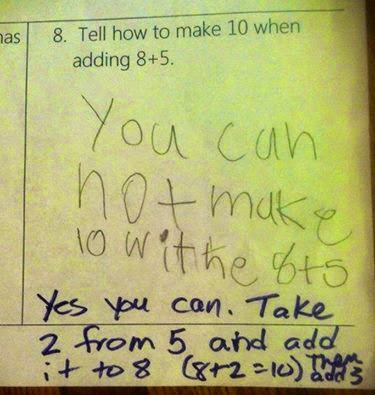 8. Tell how to make 10 when
adding 8+5.
You can
not make
10 witthe 8+5
Yes you can. Take
2 from 5 and add
it to 8 (8+2=10) Then add 3